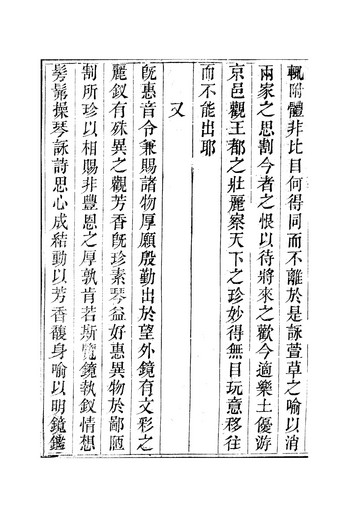 輒附體非比目何得同而不離於是詠萱草之喻以消
兩家之思割今者之恨以待將來之歡今適樂土優游
京邑觀王都之壯麗察天下之珍妙得無目玩意移往
而不能出耶
又
旣惠音令兼賜諸物厚願殷勤出於望外鏡有文彩之
麗釵有殊異之觀芳香旣珍素琴益好惠異物於鄙陋
割所珍以相賜非豐恩之厚孰肯若斯覽鏡執釵情想
髣髴操琴詠詩思心成結動以芳香馥身喻以明鏡鑑